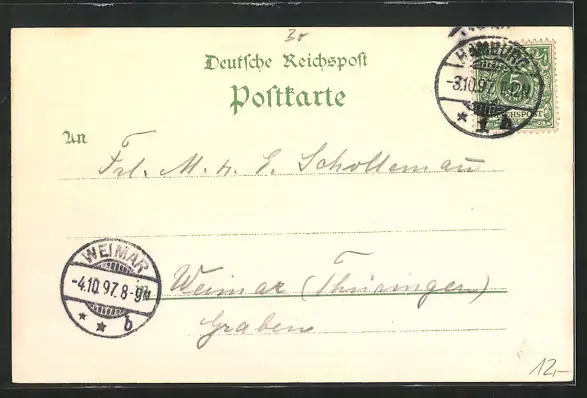 30
Deutsche Reichspost
Postkarte
HAMBURG
-3.10.97.
* 1 b
5
REICHSPOST
An
Frl. M. u. E. Schollemau
WEIMAR
-4.10.97. 8-9V
* * b
Weimar (Thüringen)
Graben
12,-